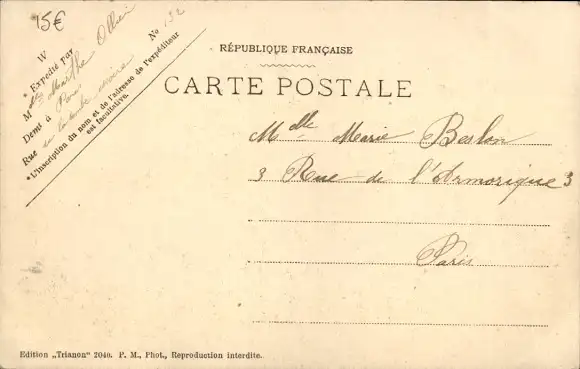 15€
W
* Expédié par
M lle Marthe Ollier
Demt à Paris
Rue No 132
*L'inscription du nom et de l'adresse de l'expéditeur
est facultative.
RÉPUBLIQUE FRANÇAISE
CARTE POSTALE
Melle Marie Beslon
3 Rue de l'Armorique 3
Paris
Edition „Trianon" 2040. P. M., Phot., Reproduction interdite.